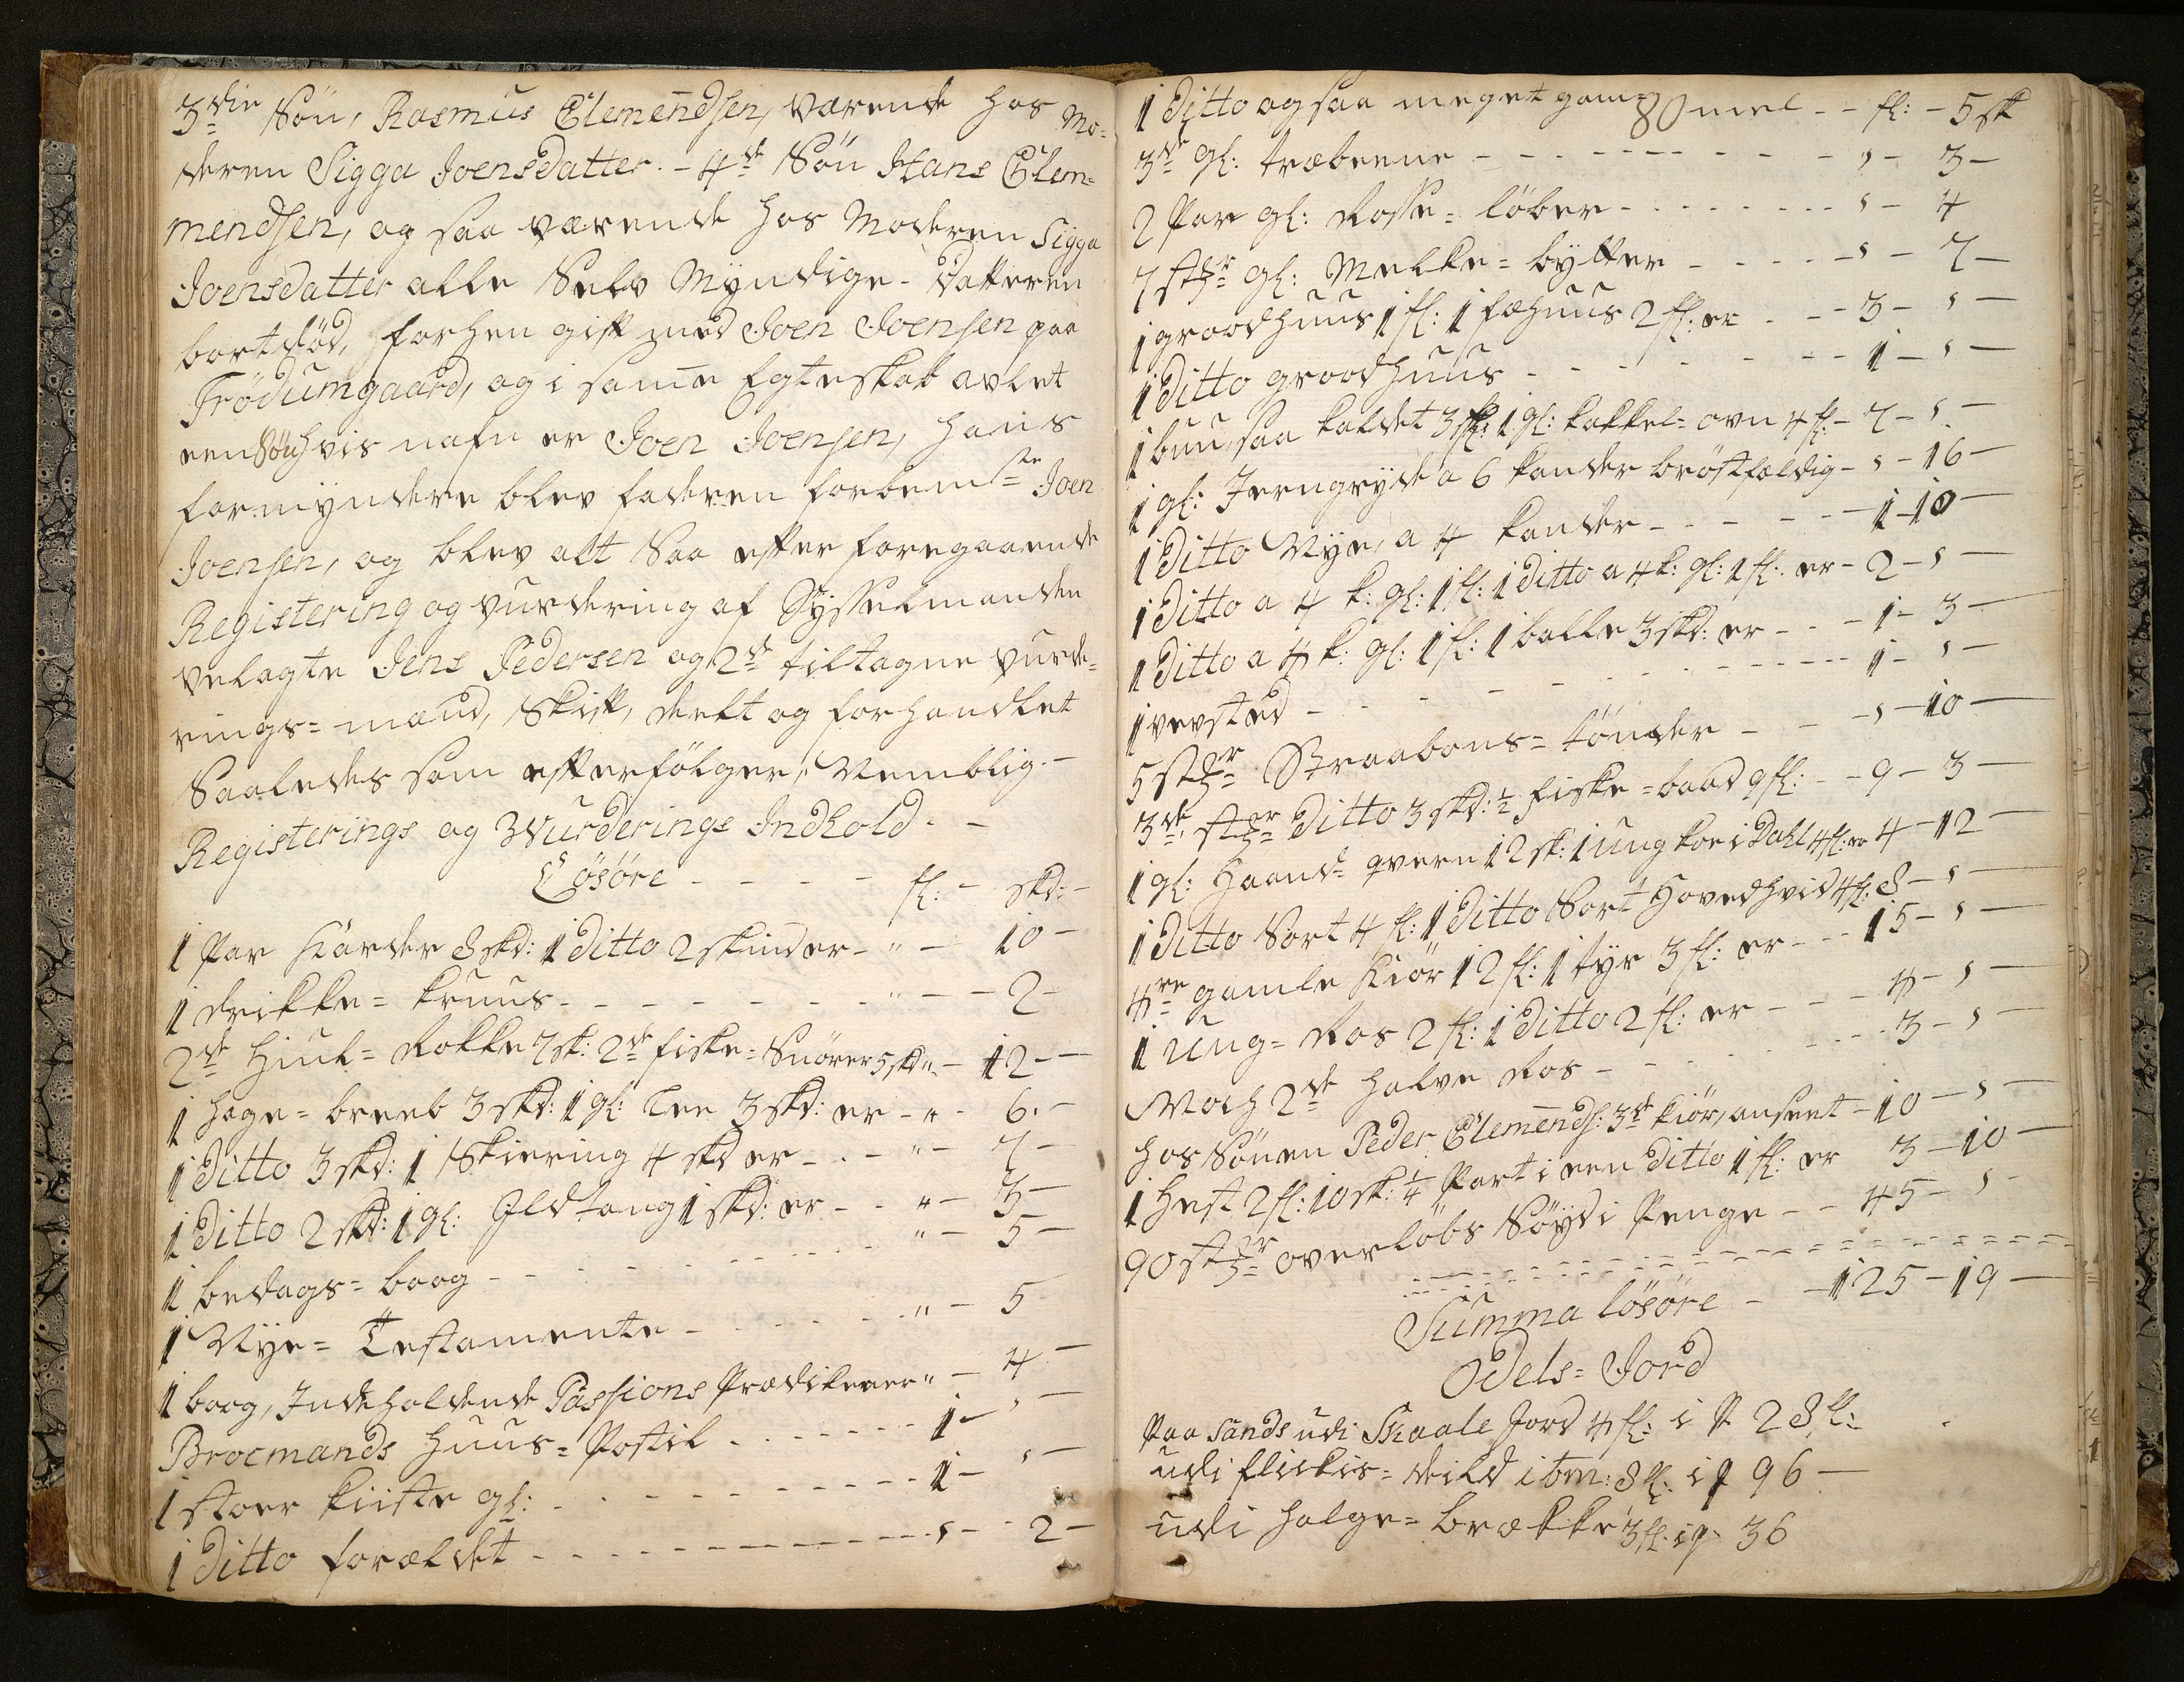 3die Søn, Rasmus Clemendsen, værende hos Mo=
deren Sigga Joensdatter. - 4de Søn Hans Clem=
mendsen, og saa værende hos Moderen Sigga
Joensdatter alle Selv Myndige. Datteren
bortdød, forhen gift med Joen Joensen paa
Trødumgaard, og i samme Egteskab avlet
een Søn hvis nafn er Joen Joensen, hans
formyndere blev faderen forbemte Joen
Joensen, og blev alt Saa efter foregaaende
Registering og vurdering af Sysselmanden
velagte Jens Pedersen og 2de tiltagne vurde=
rings= mænd, Skift, deelt og forhandlet
Saaledes som efterfølger, Nemblig. -
Registerings og Wurderings Indhold. -
Løsøre - - - - - fl: - skd: -
1 Par Karder 8 skd: 1 Ditto 2 skinder - " - 10 -
1 drikke= kruus - - - - - - " - 2 -
2de Hiul= Rokke 7 sk: 2de fiske= Snører 5 skd " - 12 -
1 hage= breeb 3 skd: 1 gl: Lee 3 skd: er - " - 6 -
1 Ditto 3 skd: 1 Skiering 4 skd er - - " - 7 -
1 Ditto 2 skd: 1 gl: Ildtang 1 skd: er - - " - 3 -
1 bedags= boog - - - - - " - 5 -
1 Nye= Testamente - - - - - " - 5
1 boog, Indeholdende Passions Prædikener " - 4 -
Brocmands Huus= Postil - - - - - 1 - , -
1 stoer kiiste gl: - - - - - 1 - , -
1 Ditto forældet - - - - - , - 2 -
1 Ditto og saa meget gam=
mel - - fl: - 5 sk
80
3de gl: træbeene - - - - - , - 3 -
2 Par gl: Rosse= løber - - - - - , - 4
7 stkr gl: Melke= bytter - - - - , - 7 -
1 groodhuus 1 fl: 1 fæhuus 2 fl: er - - 3 - , -
1 Ditto groodhuus - - - - - 1 - , -
1 buur, saa kaldet 3 fl: 1 gl: kakkel= ovn 4 fl: - 7 - , -
1 gl: Jerngryde a 6 kander brøstfældig - , - 16 -
1 Ditto Nye, a 4 kander - - - - - 1 - 10 -
1 Ditto a 4 k: gl: 1 fl: 1 Ditto a 4 k: gl: 1 fl: er - 2 - , -
1 Ditto a 4 k: gl: 1 fl: 1 balle 3 skd: er - - - 1 - 3 -
1 vevstæd - - - - - 1 - , -
5 stkr Straabons= tønder - - - , - 10 -
3de stkr Ditto 3 skd: ½ fiske= baad 9 fl: - - 9 - 3 -
1 gl: Haand= qvern 12 sk: 1 ung koe i Dahl 4 fl: er 4 - 12 -
1 Ditto Sort 4 fl: 1 Ditto Sort Hovedhvid 4 fl: 8 - , -
4re gamle Kiør 12 fl: 1 tyr 3 fl: er - - 15 - , -
1 ung= Ros 2 fl: 1 Ditto 2 fl: er - - - 4 - , -
Noch 2de halve Ros - - - - - 3 - , -
hos Sønen Peder Clemends: 3de kiør, anseet - 10 - , -
1 Hest 2 fl: 10 sk: ¼ Part i een Ditto 1 fl: er 3 - 10 -
90 stkr overløbs Søyd i Penge - - 45 - , -
Summa løsøre - - 125 - 19 -
Odels= Jord
Paa Sands udi Skaale Jord 4 fl: i P 28 fl:
udi flickis= deild ibm: 8 fl: i P 96 -
udi Holge= brække 3 fl: i P 36